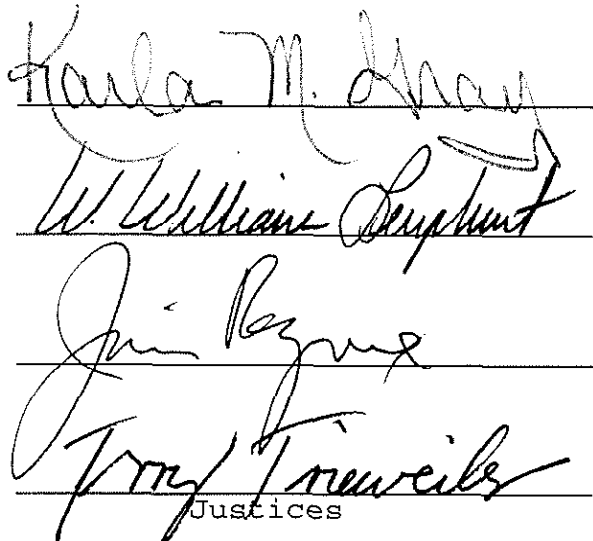 Karla M. Gray
W. William Leaphart
Jim Regnier
Terry Trieweiler
Justices